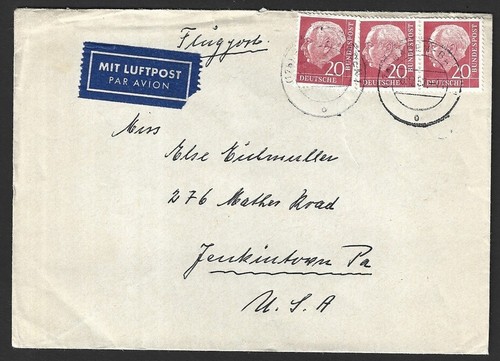 Flugpost.
MIT LUFTPOST
PAR AVION
20 DEUTSCHE BUNDESPOST
20 DEUTSCHE BUNDESPOST
20 DEUTSCHE BUNDESPOST
Miss
Else Eitmuller
276 Mather Road
Jenkintown Pa
U.S.A